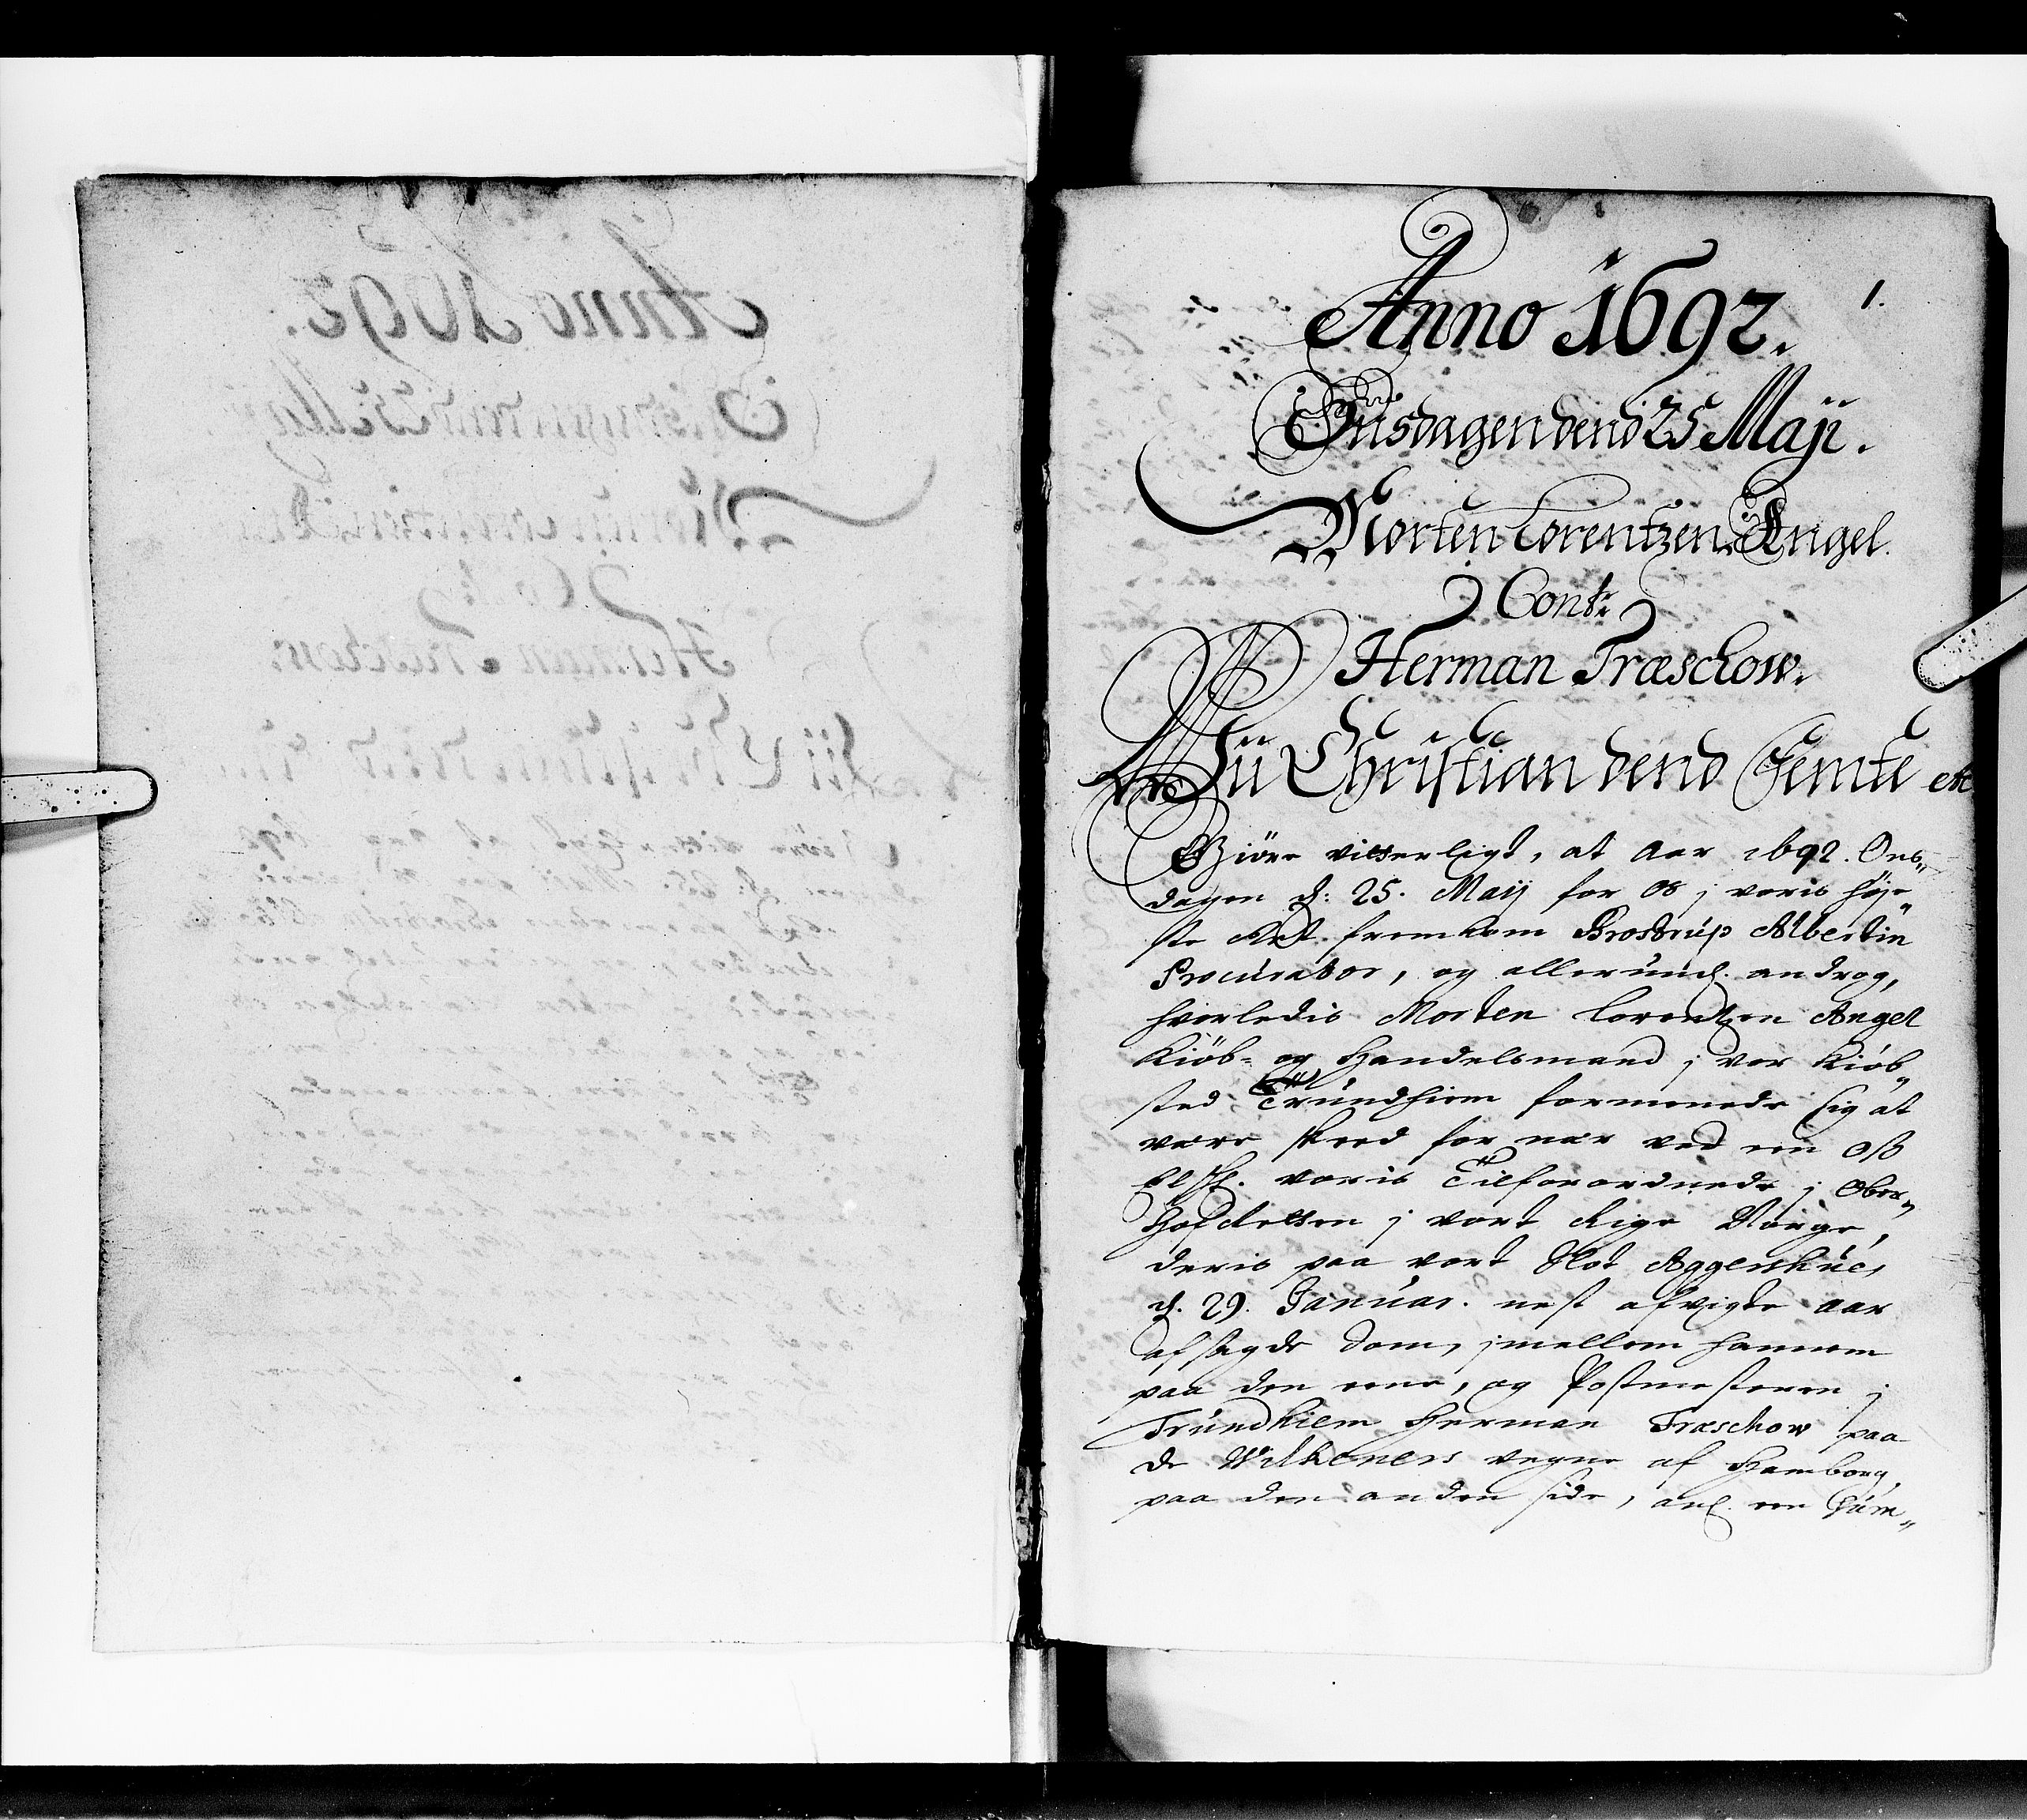 1.
Anno 1692.
Onsdagen dend 25 Maji.
Morten Lorentzen Angel.
Contr
Herman Træschow.
Wii Christian dend Femte etc
Giöre vitterligt, at Aar 1692. Ons„
dagen d: 25. Maij for os j voris høje„
ste Ret fremkom Brostrup Albertin
Procurator, og allerund. androg,
hvorledis Morten Lorentzen Angel
Kiöb- og Handelsmand j vor Kiöb„
sted Trundhiem formenede sig at
være skeed for nær ved en oß
Elsk. voris Tilforordnede j Ober„
Hof Retten j vort Rige Norge,
deris paa vort Slot Aggershues
d. 29. Januar. nest afvigte aar
afsagde dom, jmellem hannem
paa den eene, og Postmesteren j
Trundhiem Herman Træschow paa
de Wilkeners vegne af Hamborg,
paa den anden side, anl. en Sum„